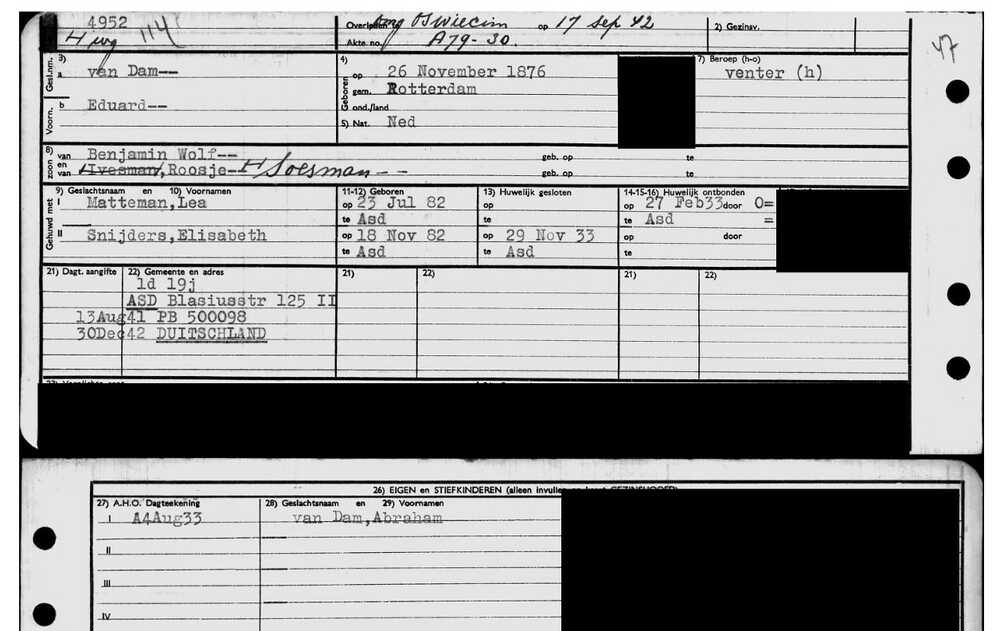 4952
114
Overleden te omg Oswiecim op 17 Sep 42
2) Gezinsv.
Akte no. A79-30.
47
Gesl.nm. 3) a van Dam--
4) Geboren op 26 November 1876
7) Beroep (h-o)
venter (h)
gem. Rotterdam
Voorn. b Eduard--
ond./land
5) Nat. Ned
8) zoon van Benjamin Wolf-- geb. op te
en van Roosje-- H Soesman -- geb. op te
Gehuwd met
9) Geslachtsnaam en 10) Voornamen
11-12) Geboren
13) Huwelijk gesloten
14-15-16) Huwelijk ontbonden
I Matteman,Lea op 23 Jul 82 op op 27 Feb33 door O=
te Asd te te Asd =
II Snijders,Elisabeth op 18 Nov 82 op 29 Nov 33 op door
te Asd te Asd te
21) Dagt. aangifte 22) Gemeente en adres 21) 22) 21) 22)
1d 19j
ASD Blasiusstr 125 II
13Aug41 PB 500098
30Dec42 DUITSCHLAND
26) EIGEN en STIEFKINDEREN (alleen invullen
27) A.H.O. Dagteekening 28) Geslachtsnaam en 29) Voornamen
I A4Aug33 van Dam,Abraham
II
III
IV